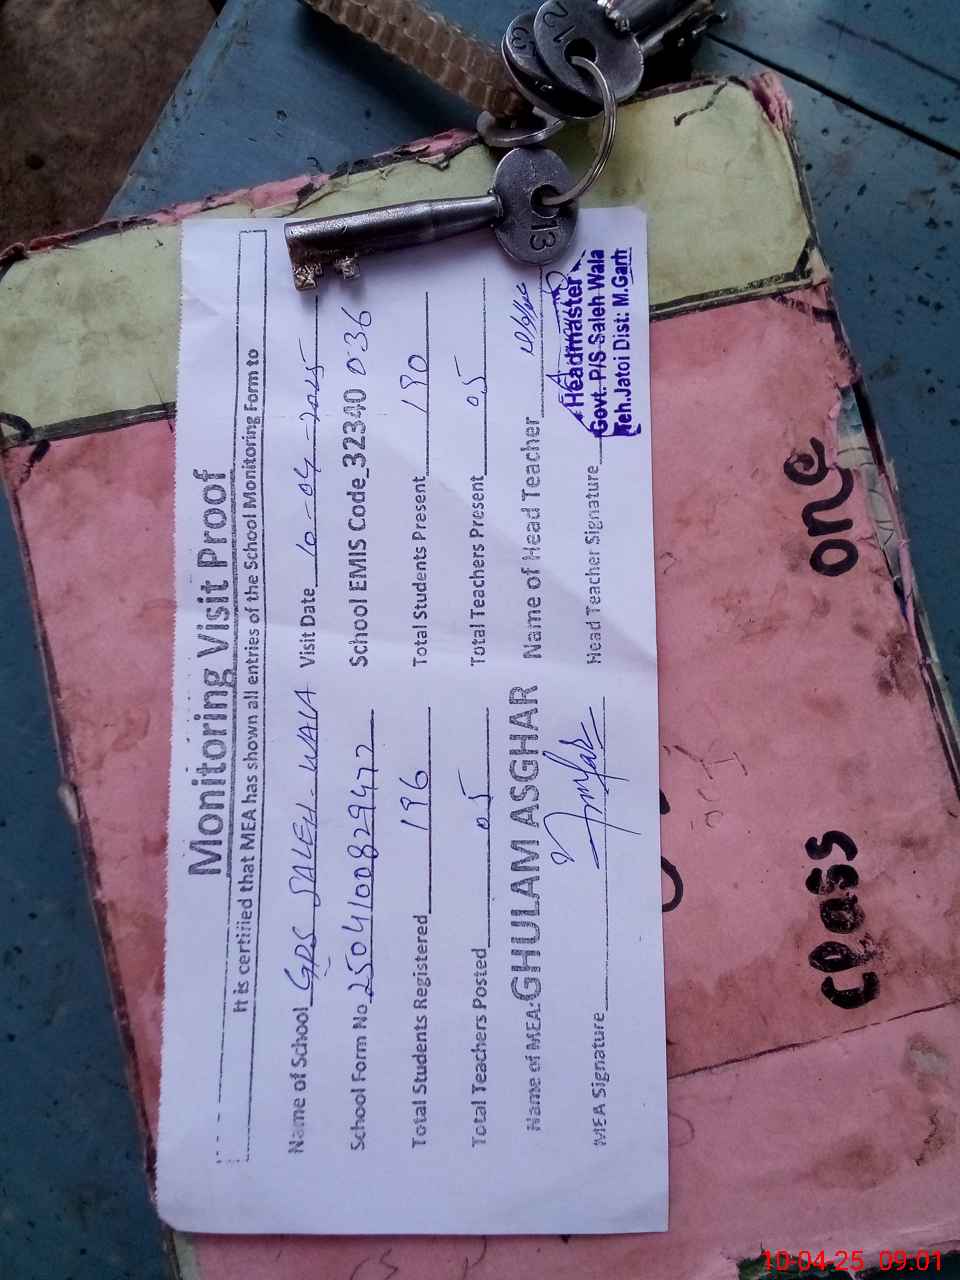 Monitoring Visit Proof
It is certified that MEA has shown all entries of the School Monitoring Form to
Name of School GPS SALEH-WALA Visit Date 10-04-2025
School Form No 2504100829472 School EMIS Code_32340 036
Total Students Registered 196 Total Students Present 190
Total Teachers Posted 05 Total Teachers Present 05
Name of MEA: GHULAM ASGHAR Name of Head Teacher
MEA Signature Head Teacher Signature
Headmaster
Govt. P/S Saleh Wala
Teh. Jatoi Dist: M.Garh
13
12
cpass one
10-04-25 09:01